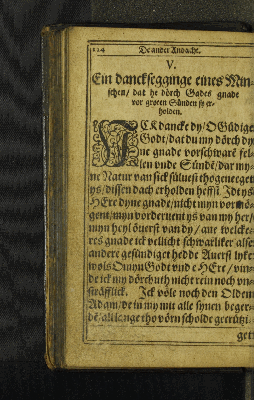 124 De ander Andacht.
V.
Ein dancksegginge eines Min-
schen / dat he dörch Gades gnade
vor groten Sünden ys er-
holden.
JCK dancke dy / O Güdige
Godt / dat du my dörch dy-
ne gnade vor schware fel-
len unde Sünde / dar my-
ne Natur van sick sülvest tho geneget
ys / dissen dach erholden heffst. Jdt ys
HEre dyne gnade / nicht myn vormö-
gent / myn vordenent ys van my her /
myn heyl överst van dy / ane welcke-
res gnade ick vellicht schwarliker alse
andere gesündiget hedde Averst lyke
wol O myn Godt unde HEre / vin-
de ick my dörchuth nicht rein noch un-
sträfflick. Jck völe noch den Olden
Adam / de in my mit alle synen beger-
de / all lange tho vörn scholde gecrützi-
get